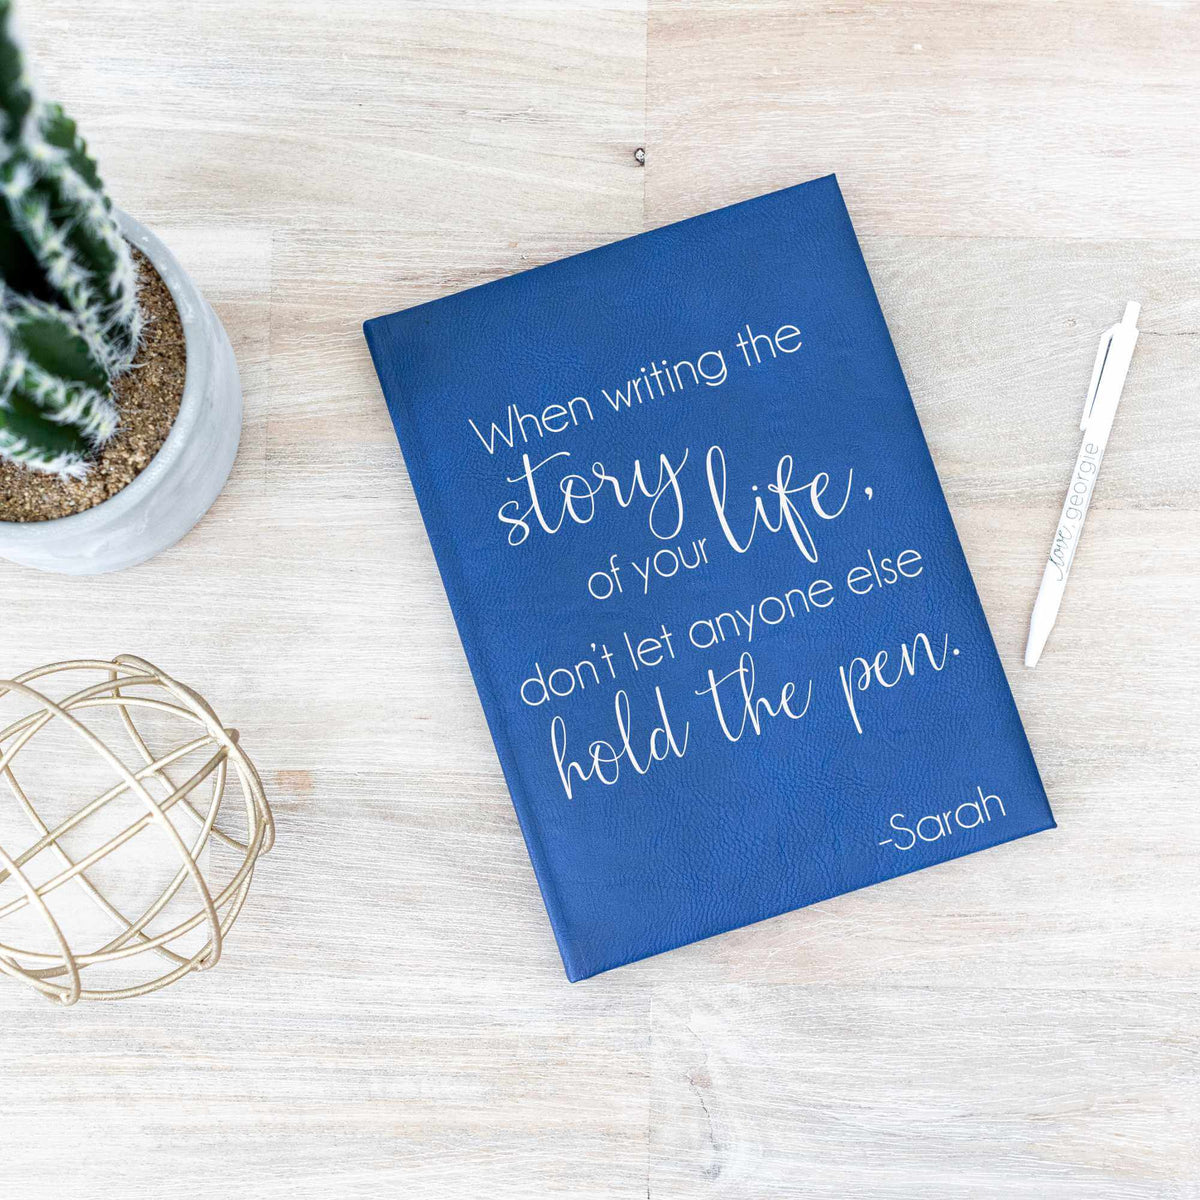 When writing the
story
of your life,
don't let anyone else
hold the pen.
-Sarah
love, georgie